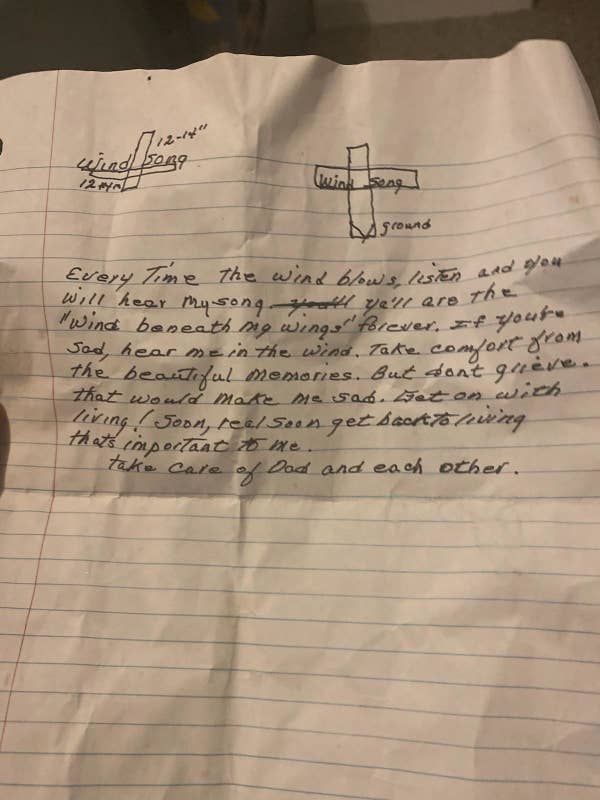 12-14"
Wind Song
Wind Song
ground
Every Time the wind blows, listen and you
will hear my song ya'll are the
"wind beneath my wings" forever. If you're
sad, hear me in the wind. Take comfort from
the beautiful memories. But dont grieve.
that would make me sad. Get on with
living! Soon, real soon get back to living
thats important to me.
take care of Dad and each other.